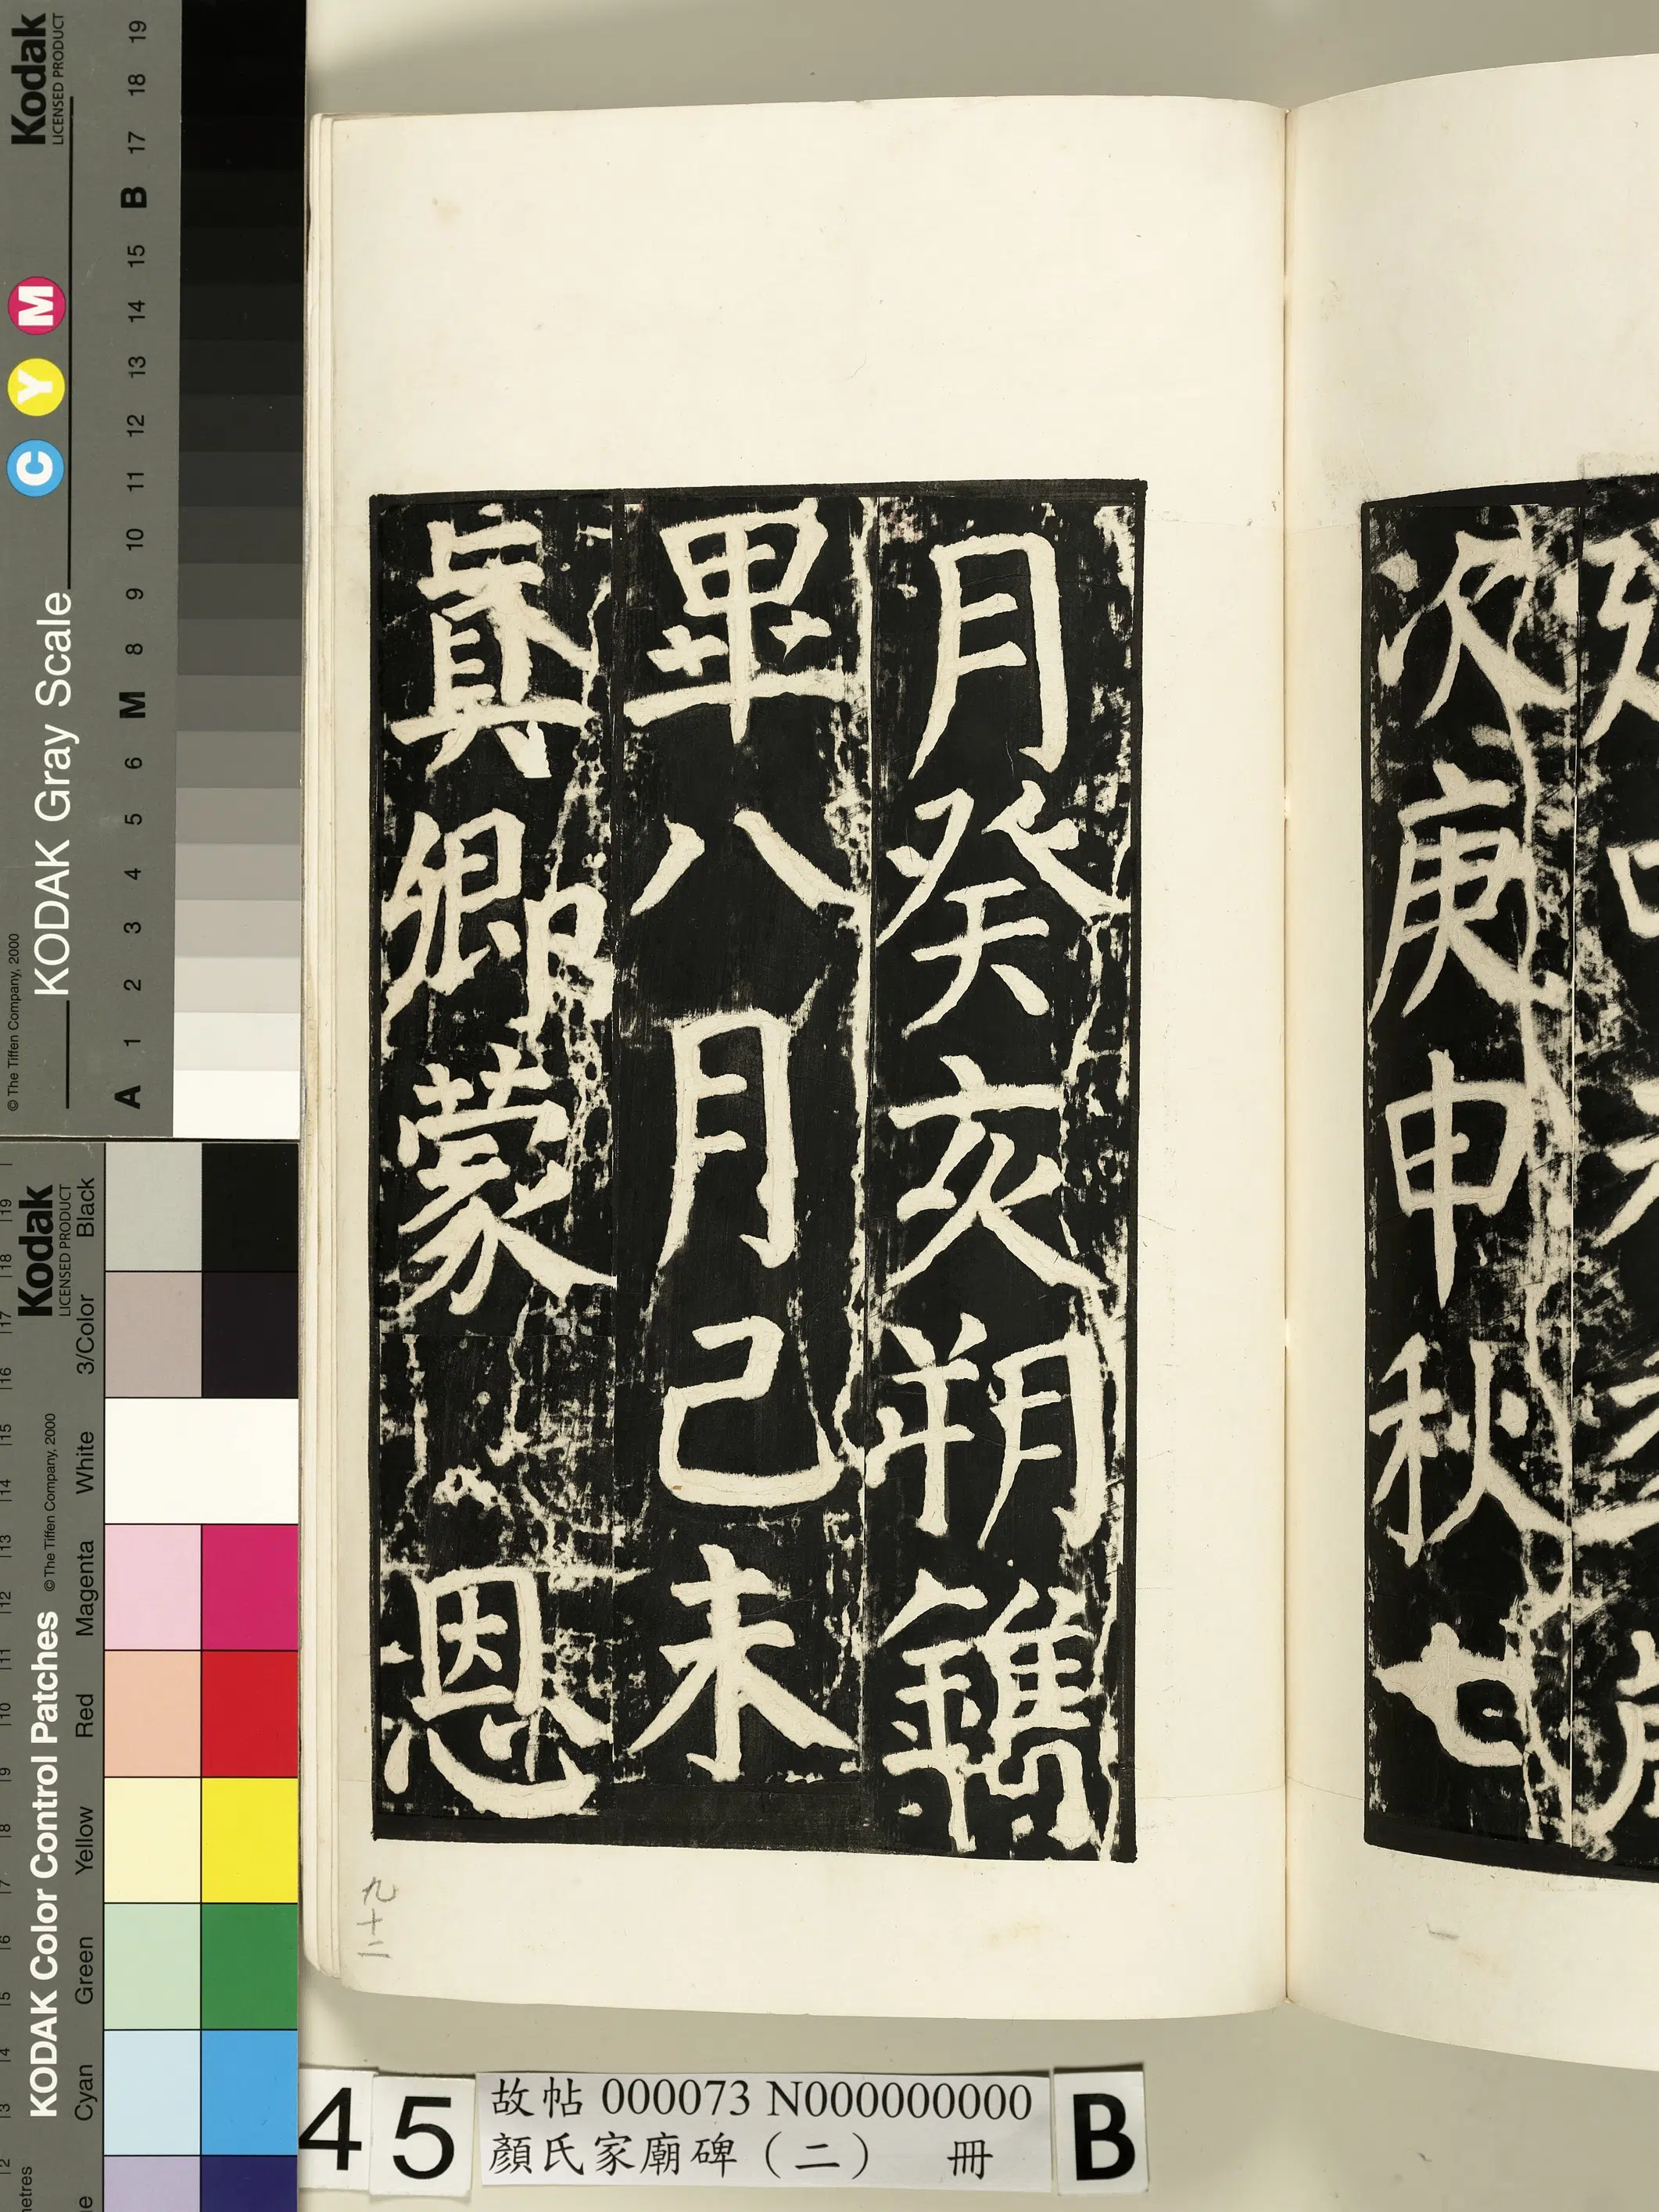 次庚申秋七
月癸亥朔鐫
畢八月己未
真卿蒙
恩
九十二
45
故帖 000073 N000000000
顏氏家廟碑（二） 冊
B
Kodak
LICENSED PRODUCT
C Y M
KODAK Gray Scale
© The Tiffen Company, 2000
A 1 2 3 4 5 6 M 8 9 10 11 12 13 14 15 B 17 18 19
Kodak
LICENSED PRODUCT
KODAK Color Control Patches
© The Tiffen Company, 2000
Cyan Green Yellow Red Magenta White 3/Color Black